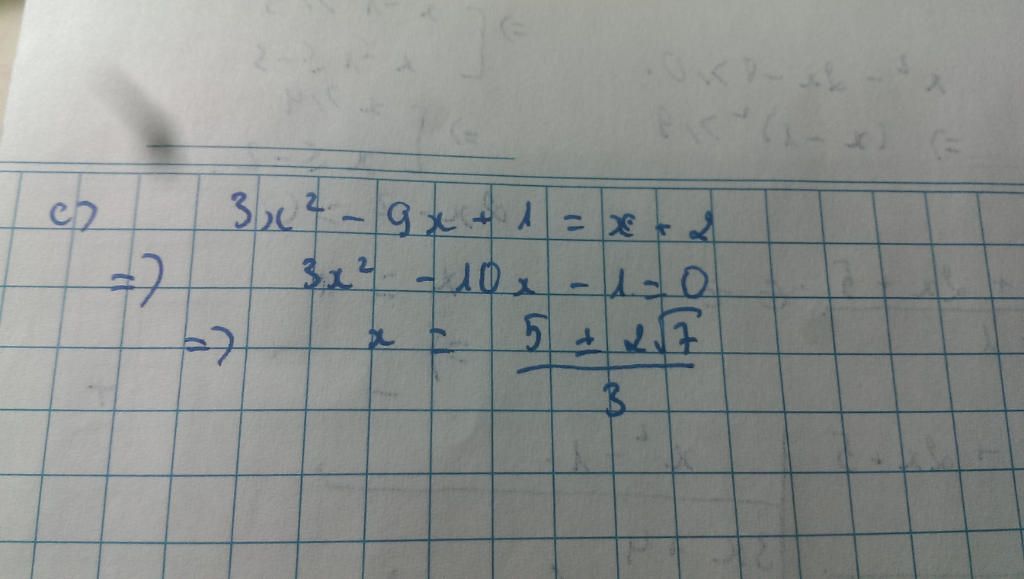 c) 3x² - 9x + 1 = x + 2
=> 3x² - 10x - 1 = 0
=> x = (5 ± 2√7)/3